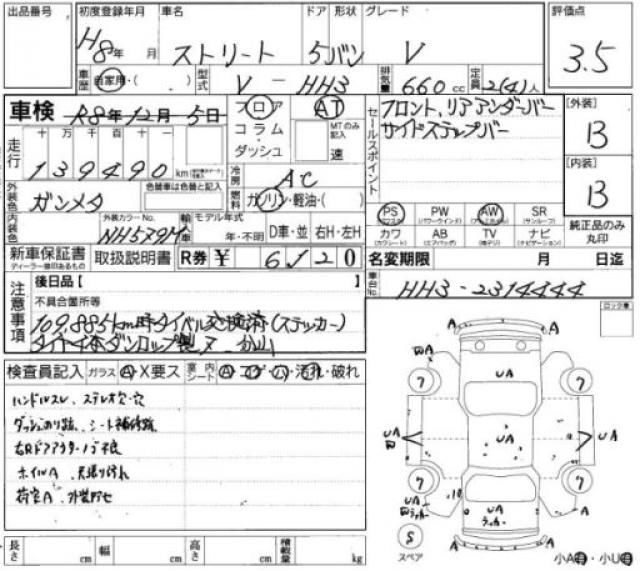 出品番号 初度登録年月 車名 ドア 形状 グレード 評価点
H8年 月 ストリート 5バン V 3.5
車歴 自家用・( ) 型式 V-HH3 排気量 660cc 定員 2(4)人
車検 R8年12月5日 フロア AT
コラム・ダッシュ MTのみ記入 速
セールスポイント フロント、リアアンダーバー
サイドステップバー
[外装] B
[内装] B
走行 十万千百十一
139490 km
冷房 AC
外装色 ガンメタ 色替車は色替と記入 燃料 ガソリン・軽油・( )
内装色 外装カラーNo. NH579M 輸入車 モデル年式
年・不明 D車・並 右H・左H
PS PW AW SR
(パワステ) (パワーウインド) (アルミホイル) (サンルーフ)
カワ AB TV ナビ
(カワシート) (エアバッグ) (地デジ) (ナビゲーション)
純正品のみ丸印
新車保証書 取扱説明書 R券 ¥ 6520
ディーラー捺印あるもの
名変期限 月 日迄
車台No. HH3-2314444
注意事項 後日品【 】
不具合箇所等
109.885km時タイベル交換済(ステッカー)
タイヤ4本ダンロップ製 ヌ 分山
ロック車
検査員記入 ガラス A・X要ス 室内シート A・コゲ・穴・汚れ・破れ
ハンドルスレ、ステレオ穴・穴
ダッシュのり跡、シート補修跡
右Rドアアウターノブ不良
ホイルA 天張り汚れ
荷室A 外装アセ
A A
凹A
7 7
UA
UA凹 UA UA
7 7
UA凹ラッカー 10
UAラッカー
S
スペア
A A
小A・小U
長さ cm 幅 cm 高さ cm 積載量 kg